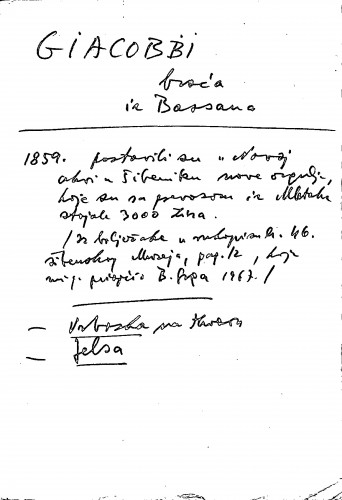 GIACOBBI
braća
iz Bassana
1859. postavili su u Novoj
crkvi u Šibeniku nove orgulje,
koje su sa prevozom iz Mletaka
stajale 3000 Zina.
/ Iz bilježake u rukopisu
šibenskog Muzeja, pag. 12, koje
mi je B. 1967. /
— Vrboska na Hvaru
— Jelsa